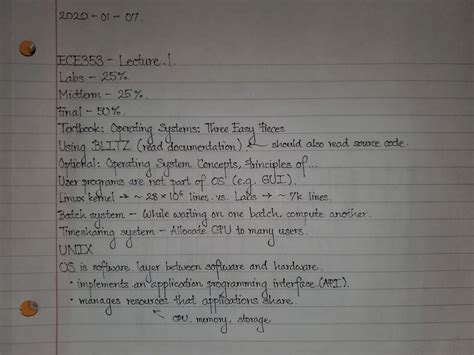 2020-01-07
ECE353 - Lecture 1.
Labs - 25%.
Midterm - 25%.
Final - 50%.
Textbook: Operating Systems: Three Easy Pieces
Using BLITZ (read documentation) ← should also read source code.
Optional: Operating System Concepts, Principles of...
User programs are not part of OS (e.g. GUI).
Linux kernel → ~ 28 × 10⁶ lines. vs. Labs → ~ 7k lines.
Batch system - While waiting on one batch, compute another.
Timesharing system - Allocate CPU to many users.
UNIX
OS is software layer between software and hardware.
• implements an application programming interface (API).
• manages resources that applications share.
↖ CPU, memory, storage